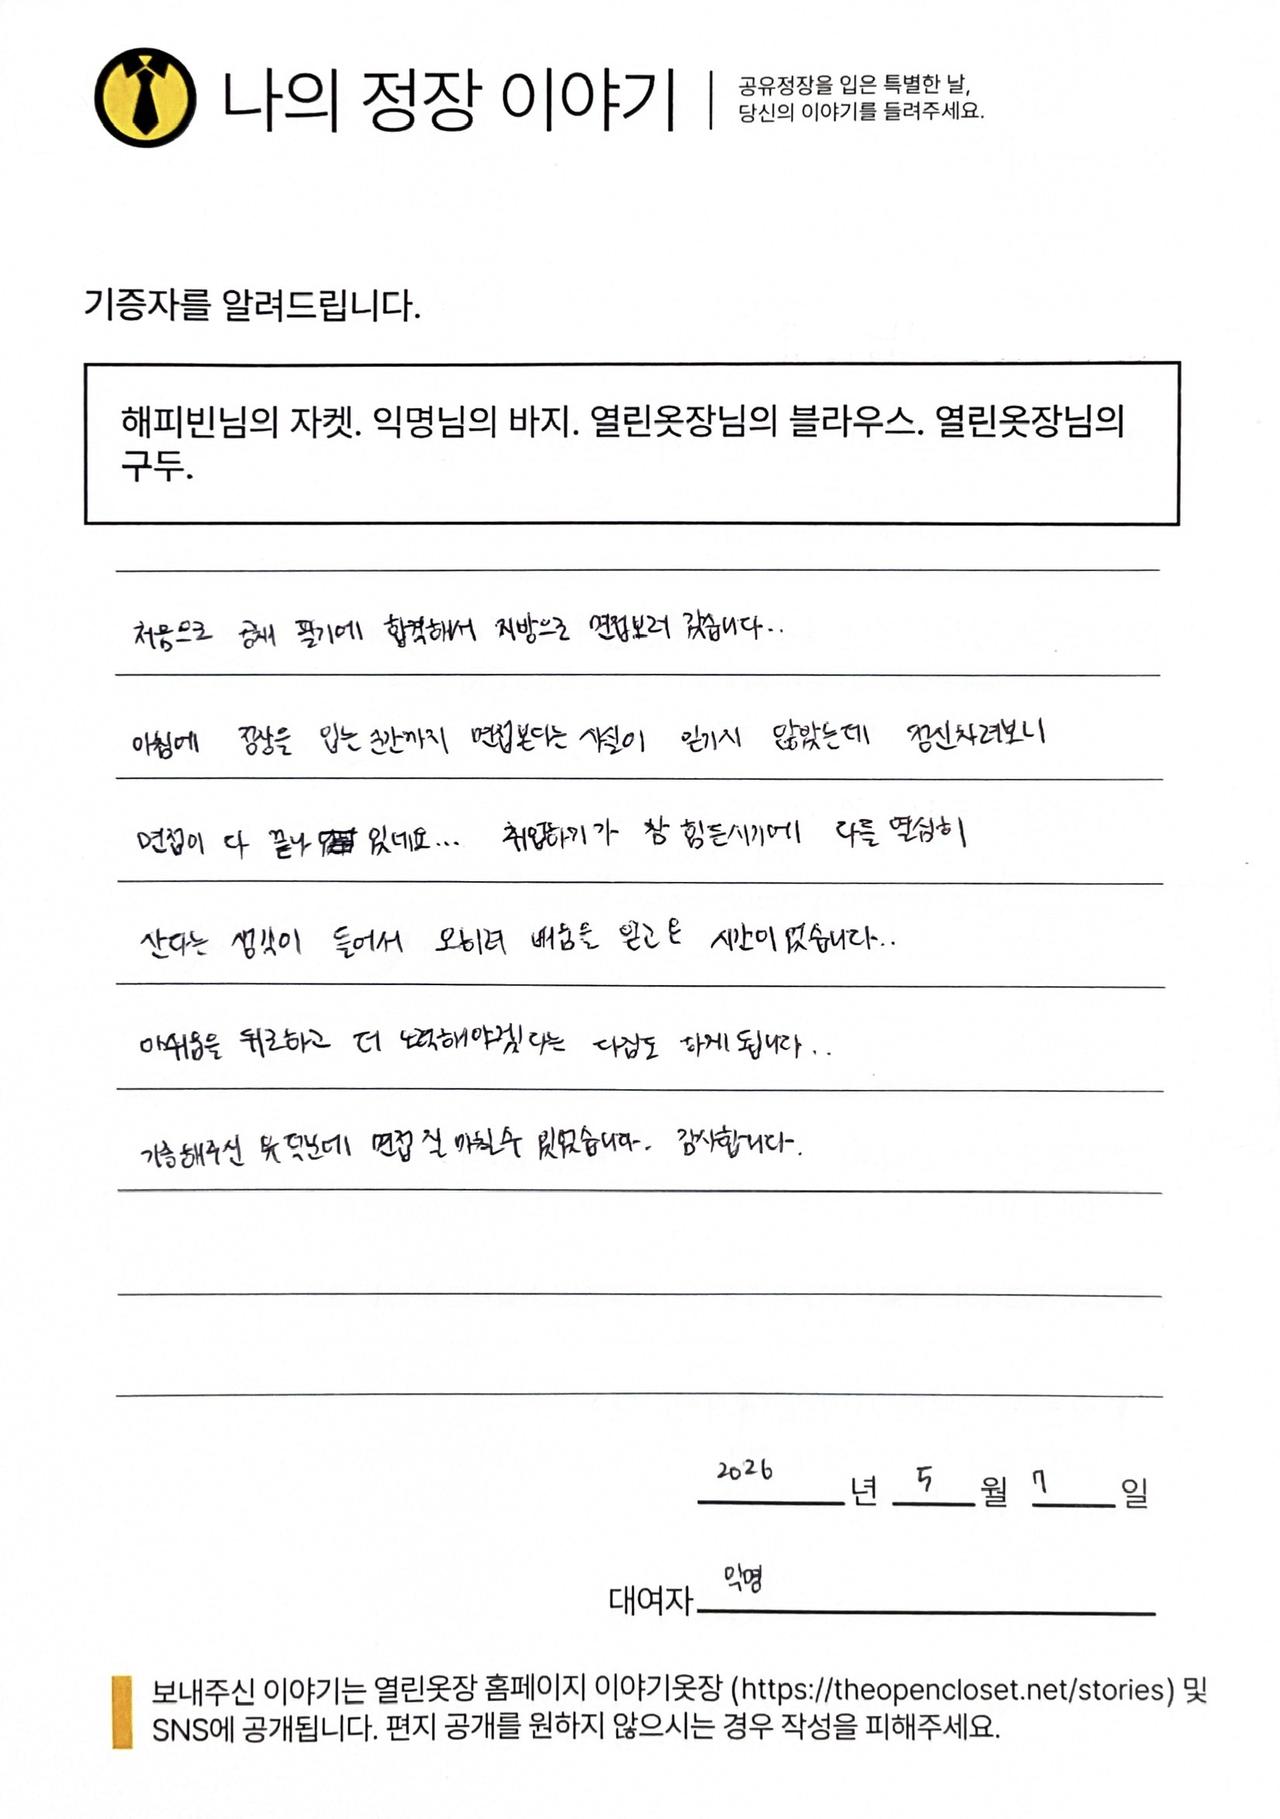 나의 정장 이야기
공유정장을 입은 특별한 날,
당신의 이야기를 들려주세요.
기증자를 알려드립니다.
해피빈님의 자켓. 익명님의 바지. 열린옷장님의 블라우스. 열린옷장님의
구두.
처음으로 공채 필기에 합격해서 지방으로 면접보러 갔습니다..
아침에 정장을 입는 순간까지 면접본다는 사실이 믿기지 않았는데 정신차려보니
면접이 다 끝나 있네요... 취업하기가 참 힘든시기에 다들 열심히
산다는 생각이 들어서 오히려 배움을 얻고 온 시간이었습니다..
아쉬움을 뒤로하고 더 노력해야겠다는 다짐도 하게 됩니다..
기증해주신 옷 덕분에 면접 잘 마칠수 있었습니다. 감사합니다.
2026 년 5 월 7 일
대여자 익명
보내주신 이야기는 열린옷장 홈페이지 이야기옷장 (https://theopencloset.net/stories) 및
SNS에 공개됩니다. 편지 공개를 원하지 않으시는 경우 작성을 피해주세요.